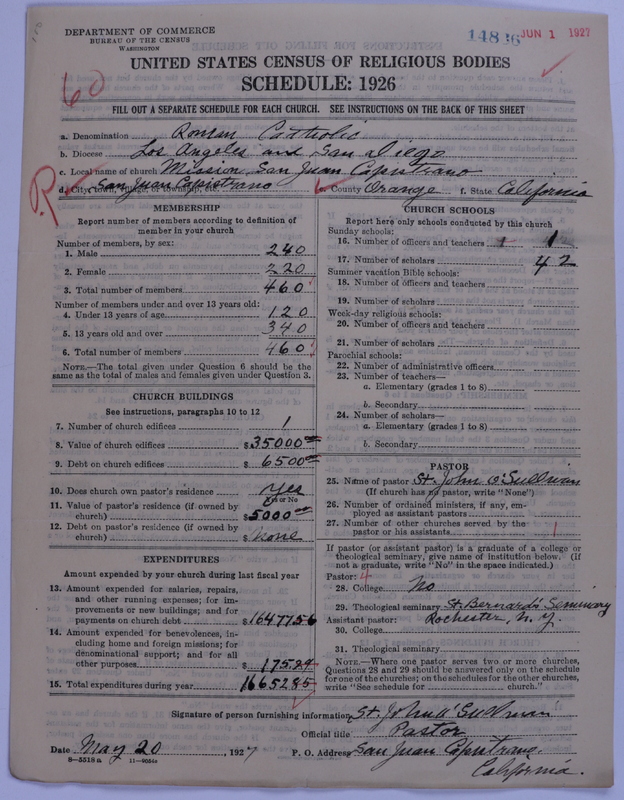 DEPARTMENT OF COMMERCE
BUREAU OF THE CENSUS
WASHINGTON
JUN 1 1927
UNITED STATES CENSUS OF RELIGIOUS BODIES
SCHEDULE: 1926
60
FILL OUT A SEPARATE SCHEDULE FOR EACH CHURCH. SEE INSTRUCTIONS ON THE BACK OF THIS SHEET
a. Denomination Roman Catholic
b. Diocese Los Angeles and San Diego
c. Local name of church Mission San Juan Capistrano
d. City, town, village, or township San Juan Capistrano e. County Orange f. State California
MEMBERSHIP
Report number of members according to definition of
member in your church
Number of members, by sex:
1. Male 240
2. Female 220
3. Total number of members 460
Number of members under and over 13 years old:
4. Under 13 years of age 120
5. 13 years old and over 340
6. Total number of members 460
NOTE.—The total given under Question 6 should be the
same as the total of males and females given under Question 3.
CHURCH BUILDINGS
See instructions, paragraphs 10 to 12
7. Number of church edifices 1
8. Value of church edifices $35000 00
9. Debt on church edifices $ 6500 00
10. Does church own pastor's residence Yes
Yes or No
11. Value of pastor's residence (if owned by
church) $5000 00
12. Debt on pastor's residence (if owned by
church) $ none
EXPENDITURES
Amount expended by your church during last fiscal year
13. Amount expended for salaries, repairs,
and other running expenses; for im-
provements or new buildings; and for
payments on church debt $16477 56
14. Amount expended for benevolences, in-
cluding home and foreign missions; for
denominational support; and for all
other purposes $ 175.29
15. Total expenditures during year 16652 85
CHURCH SCHOOLS
Report here only schools conducted by this church
Sunday schools:
16. Number of officers and teachers 1 1
17. Number of scholars 42
Summer vacation Bible schools:
18. Number of officers and teachers
19. Number of scholars
Week-day religious schools:
20. Number of officers and teachers
21. Number of scholars
Parochial schools:
22. Number of administrative officers
23. Number of teachers—
a. Elementary (grades 1 to 8)
b. Secondary
24. Number of scholars—
a. Elementary (grades 1 to 8)
b. Secondary
PASTOR
25. Name of pastor St. John O'Sullivan
(If church has no pastor, write "None")
26. Number of ordained ministers, if any, em-
ployed as assistant pastors
27. Number of other churches served by the
pastor or his assistants 1
If pastor (or assistant pastor) is a graduate of a college or
theological seminary, give name of institution below. (If
not a graduate, write "No" in the space indicated.)
Pastor: 4
28. College No
29. Theological seminary St. Bernard's Seminary
Assistant pastor: Rochester, N.Y.
30. College
31. Theological seminary
NOTE.—Where one pastor serves two or more churches,
Questions 28 and 29 should be answered only on the schedule
for one of the churches; on the schedules for the other churches,
write "See schedule for church."
Signature of person furnishing information St. John O'Sullivan
Official title Pastor
Date May 20, 1927 P. O. Address San Juan Capistrano
8—5518 a 11—9054 California.